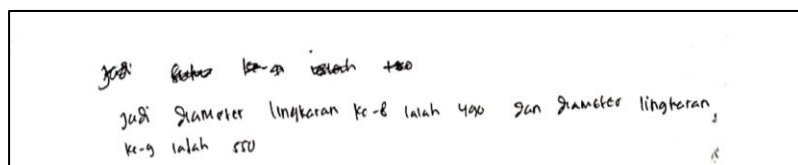 Jadi
Jadi diameter lingkaran ke-8 ialah 490 dan diameter lingkaran
ke-9 ialah 550